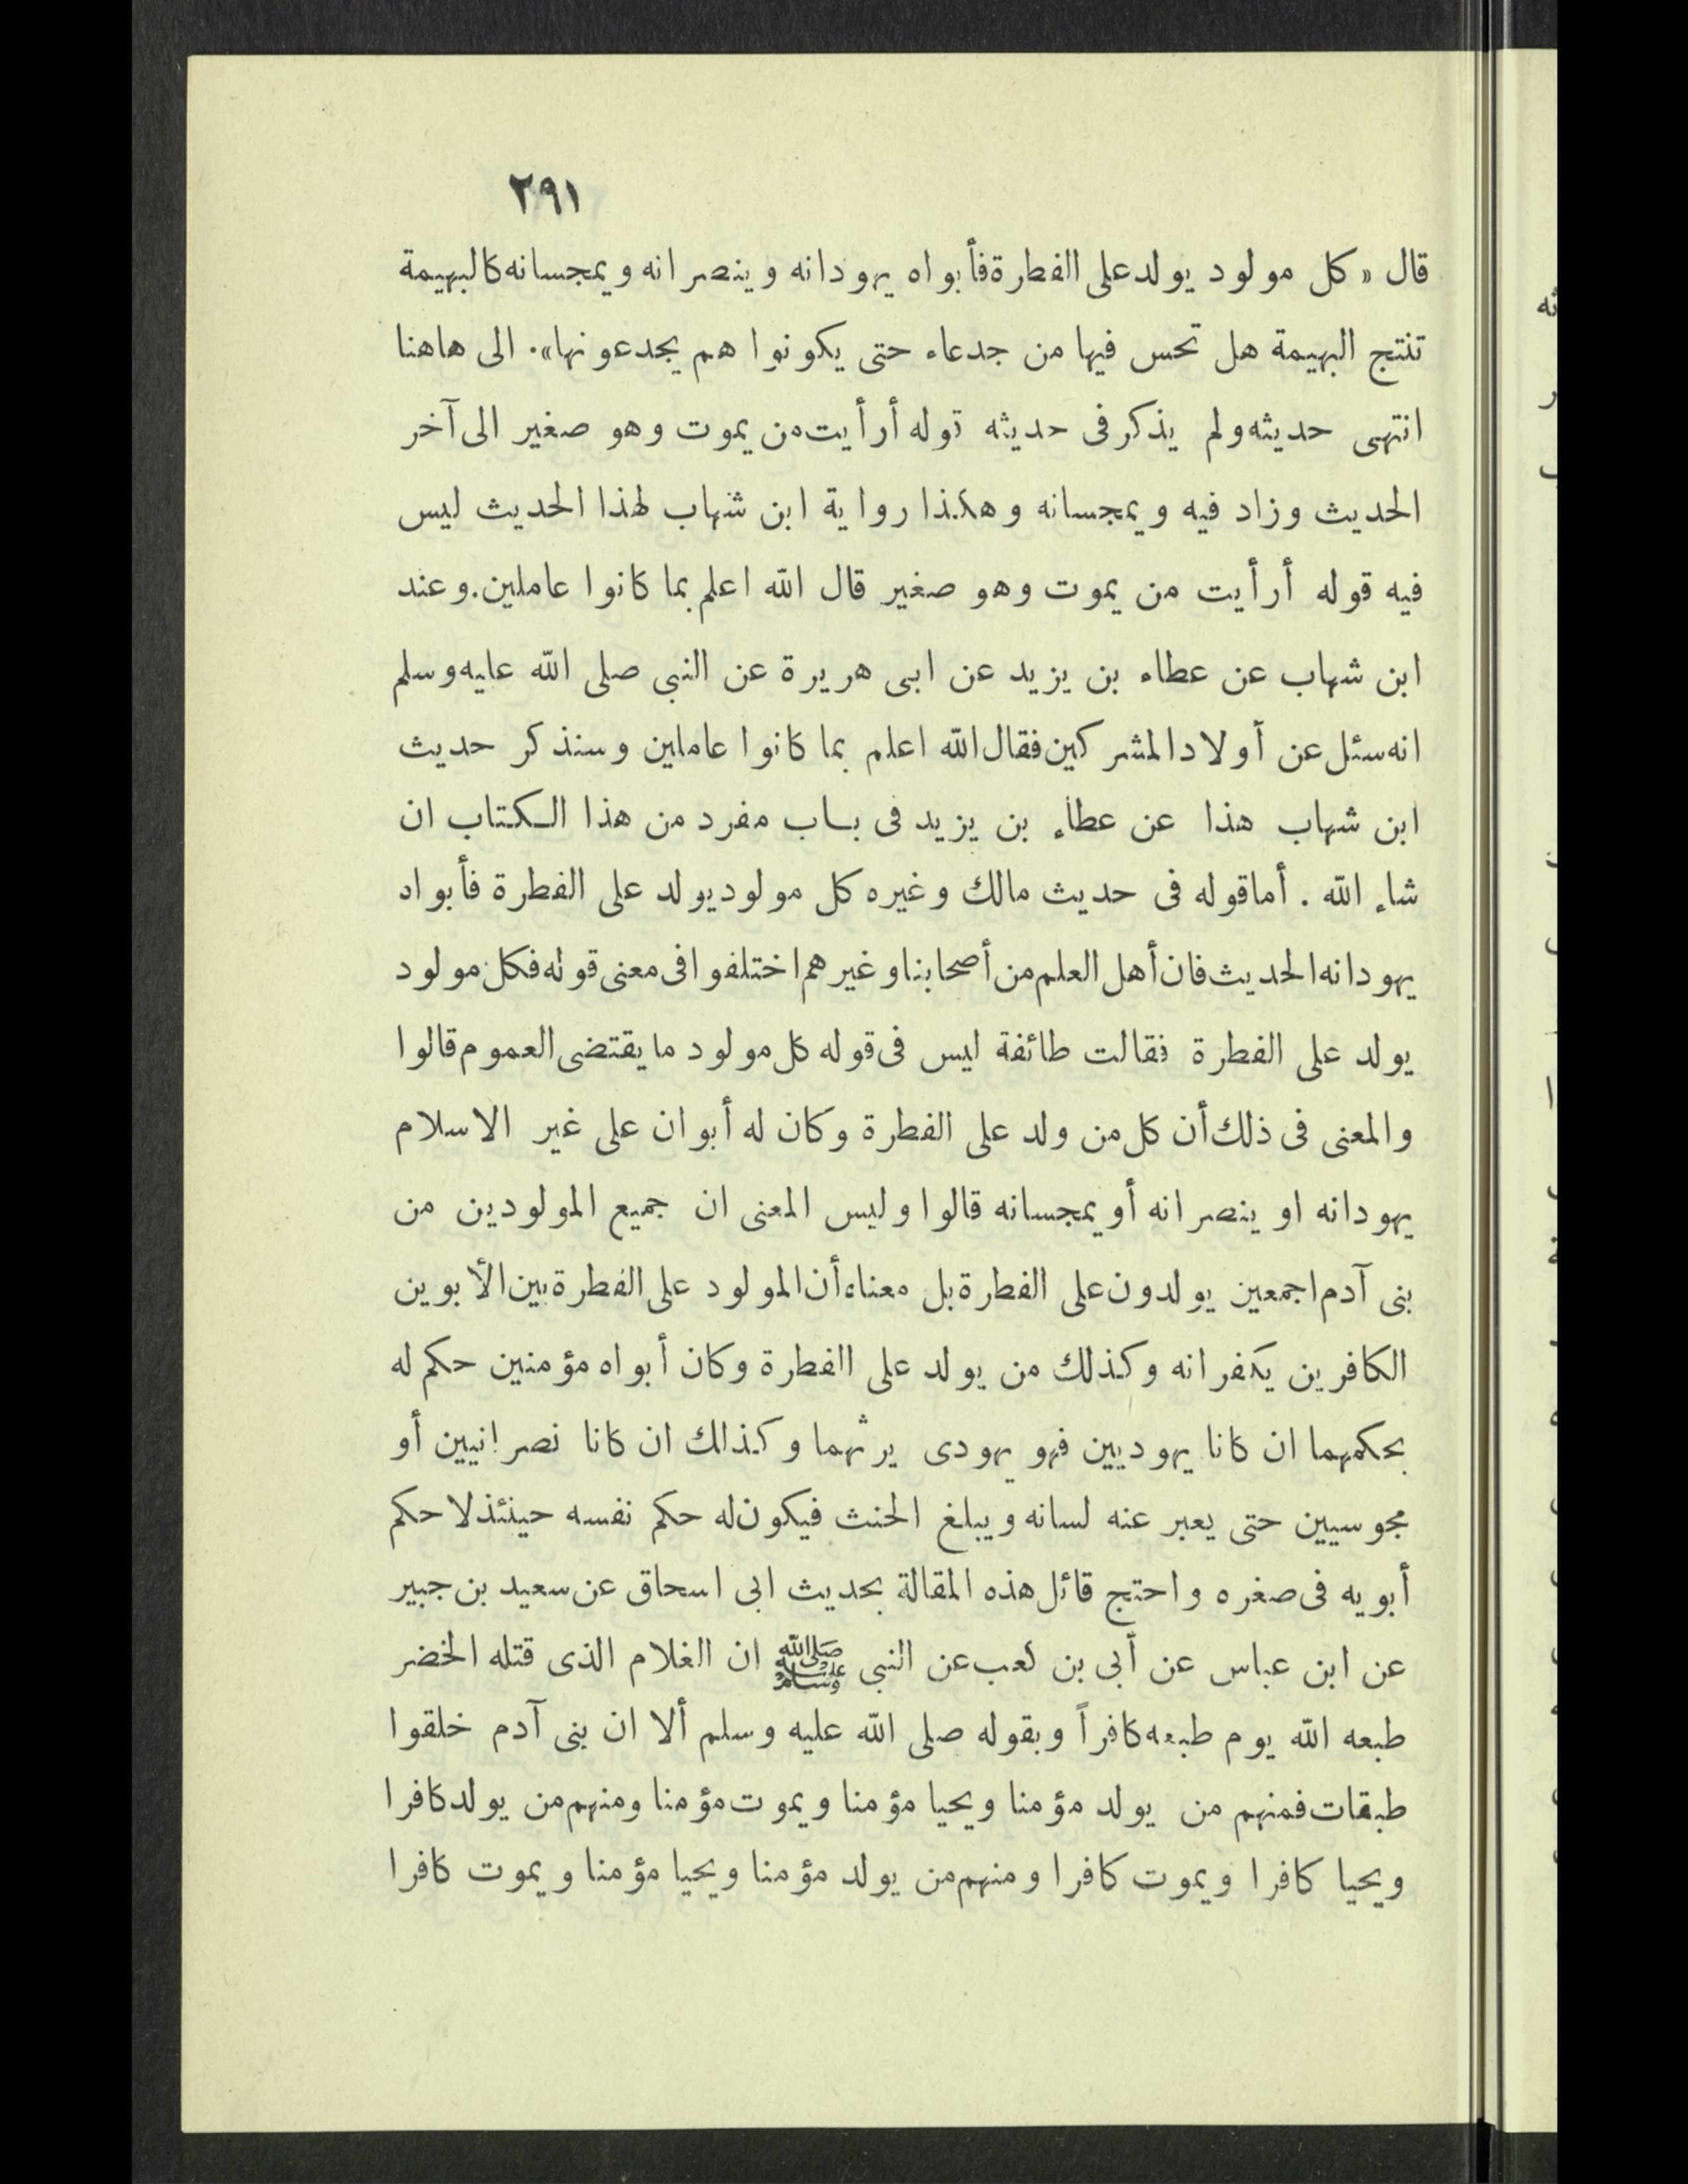 ٢٩١
قال « كل مولود يولد على الفطرة فأبواه يهودانه وينصرانه ويمجسانه كالبهيمة
تنتج البهيمة هل تحس فيها من جدعاء حتى يكونوا هم يجدعونها». الى هاهنا
انتهى حديثه ولم يذكر فى حديثه قوله أرأيت من يموت وهو صغير الى آخر
الحديث وزاد فيه ويمجسانه وهكذا رواية ابن شهاب لهذا الحديث ليس
فيه قوله أرأيت من يموت وهو صغير قال الله اعلم بما كانوا عاملين. وعند
ابن شهاب عن عطاء بن يزيد عن ابى هريرة عن النبى صلى الله عليه وسلم
انه سئل عن أولاد المشركين فقال الله اعلم بما كانوا عاملين وسنذكر حديث
ابن شهاب هذا عن عطاء بن يزيد فى باب مفرد من هذا الكتاب ان
شاء الله . أما قوله فى حديث مالك وغيره كل مولود يولد على الفطرة فأبواه
يهودانه الحديث فان أهل العلم من أصحابنا وغيرهم اختلفوا فى معنى قوله فكل مولود
يولد على الفطرة فقالت طائفة ليس فى قوله كل مولود ما يقتضى العموم قالوا
والمعنى فى ذلك أن كل من ولد على الفطرة وكان له أبوان على غير الاسلام
يهودانه او ينصرانه أو يمجسانه قالوا وليس المعنى ان جميع المولودين من
بنى آدم اجمعين يولدون على الفطرة بل معناه أن المولود على الفطرة بين الأبوين
الكافرين يكفرانه وكذلك من يولد على الفطرة وكان أبواه مؤمنين حكم له
بحكمهما ان كانا يهوديين فهو يهودى يرثهما وكذالك ان كانا نصرانيين أو
مجوسيين حتى يعبر عنه لسانه ويبلغ الحنث فيكون له حكم نفسه حينئذ لا حكم
أبويه فى صغره واحتج قائل هذه المقالة بحديث ابى اسحاق عن سعيد بن جبير
عن ابن عباس عن أبى بن كعب عن النبى ﷺ ان الغلام الذى قتله الخضر
طبعه الله يوم طبعه كافراً وبقوله صلى الله عليه وسلم ألا ان بنى آدم خلقوا
طبقات فمنهم من يولد مؤمنا ويحيا مؤمنا ويموت مؤمنا ومنهم من يولد كافرا
ويحيا كافرا ويموت كافرا ومنهم من يولد مؤمنا ويحيا مؤمنا ويموت كافرا